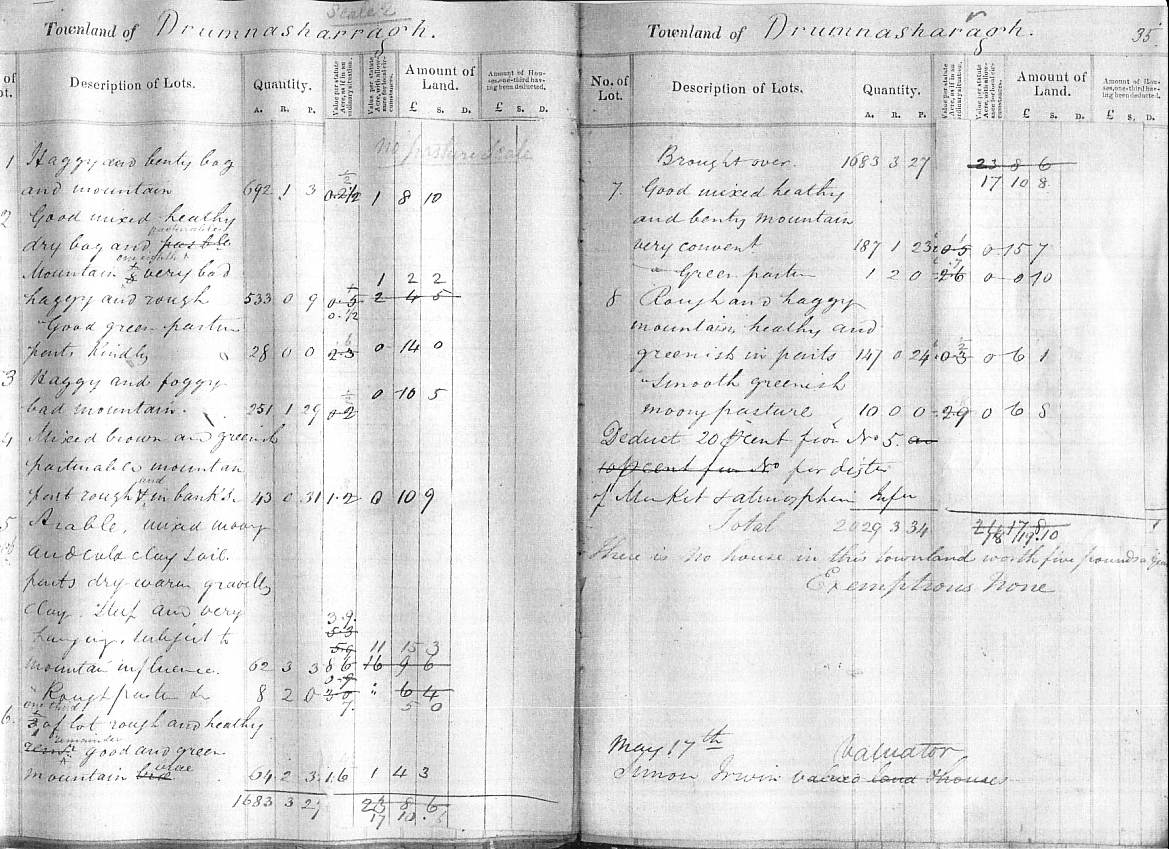 Scale 2
Townland of Drumnasharragh.
of Lot. Description of Lots. Quantity. Value per statute Acre, as if in an ordinary situation. Value per statute Acre, with allowance for local circumstances. Amount of Land. Amount of Houses, one-third having been deducted.
A. R. P. £ S. D. £ S. D.
No pasture Scale
1 Haggy and benty bog
and mountain 692 1 3 0 2½ 1 8 10
2 Good mixed heathy
dry bog and pasturable
one eighth
Mountain ⅛ very bad 1 2 2
haggy and rough 533 0 9 0 5 2 4 5
0 ½
" Good green pasture
parts kindly 28 0 0 2 3 0 14 0
3 Haggy and foggy
bad mountain. 251 1 29 0 2 0 10 5
4 Mixed brown and greenish
pasturable mountain
part rough & in bank's 43 0 31 1.2 0 10 9
5 Arable, mixed moory
and cold clay soil
parts dry warm gravelly
clay. Steep and very 3.9.
hanging, subject to 5 3
5 9 11 15 3
mountain influence. 62 3 3 8 6 16 9 6
" Rough pasture &c 8 2 0 3 0 " 6 4
7. 5 0
one third
6. ⅓ of lot rough and heathy
remainder
remr. good and green
mountain blue 64 2 3 1.6 1 4 3
1683 3 27 23 8 6
17 10 8
Townland of Drumnasharagh. 35
No. of Lot. Description of Lots. Quantity. Value per statute Acre, as if in an ordinary situation. Value per statute Acre, with allowance for local circumstances. Amount of Land. Amount of Houses, one-third having been deducted.
A. R. P. £ S. D. £ S. D.
Brought over. 1683 3 27 23 8 6
17 10 8
7. Good mixed heathy
and benty mountain
very convent. 187 1 23 0 5 0 15 7
" Green pasture 1 2 0 2 6 0 0 10
8 Rough and haggy
mountain, heathy and
greenish in parts 147 0 24 0 3 0 6 1
" Smooth greenish
moory pasture 10 0 0 2 9 0 6 8
Deduct 20 pcent from No 5. an
10 pcent from No for distce
of Market & atmospheric Infce
Total 2029 3 34 24 17 8
18 19 10
There is no house in this townland worth five pounds a year
Exemptions None
May 17th Valuator
Simon Irwin valued land & houses